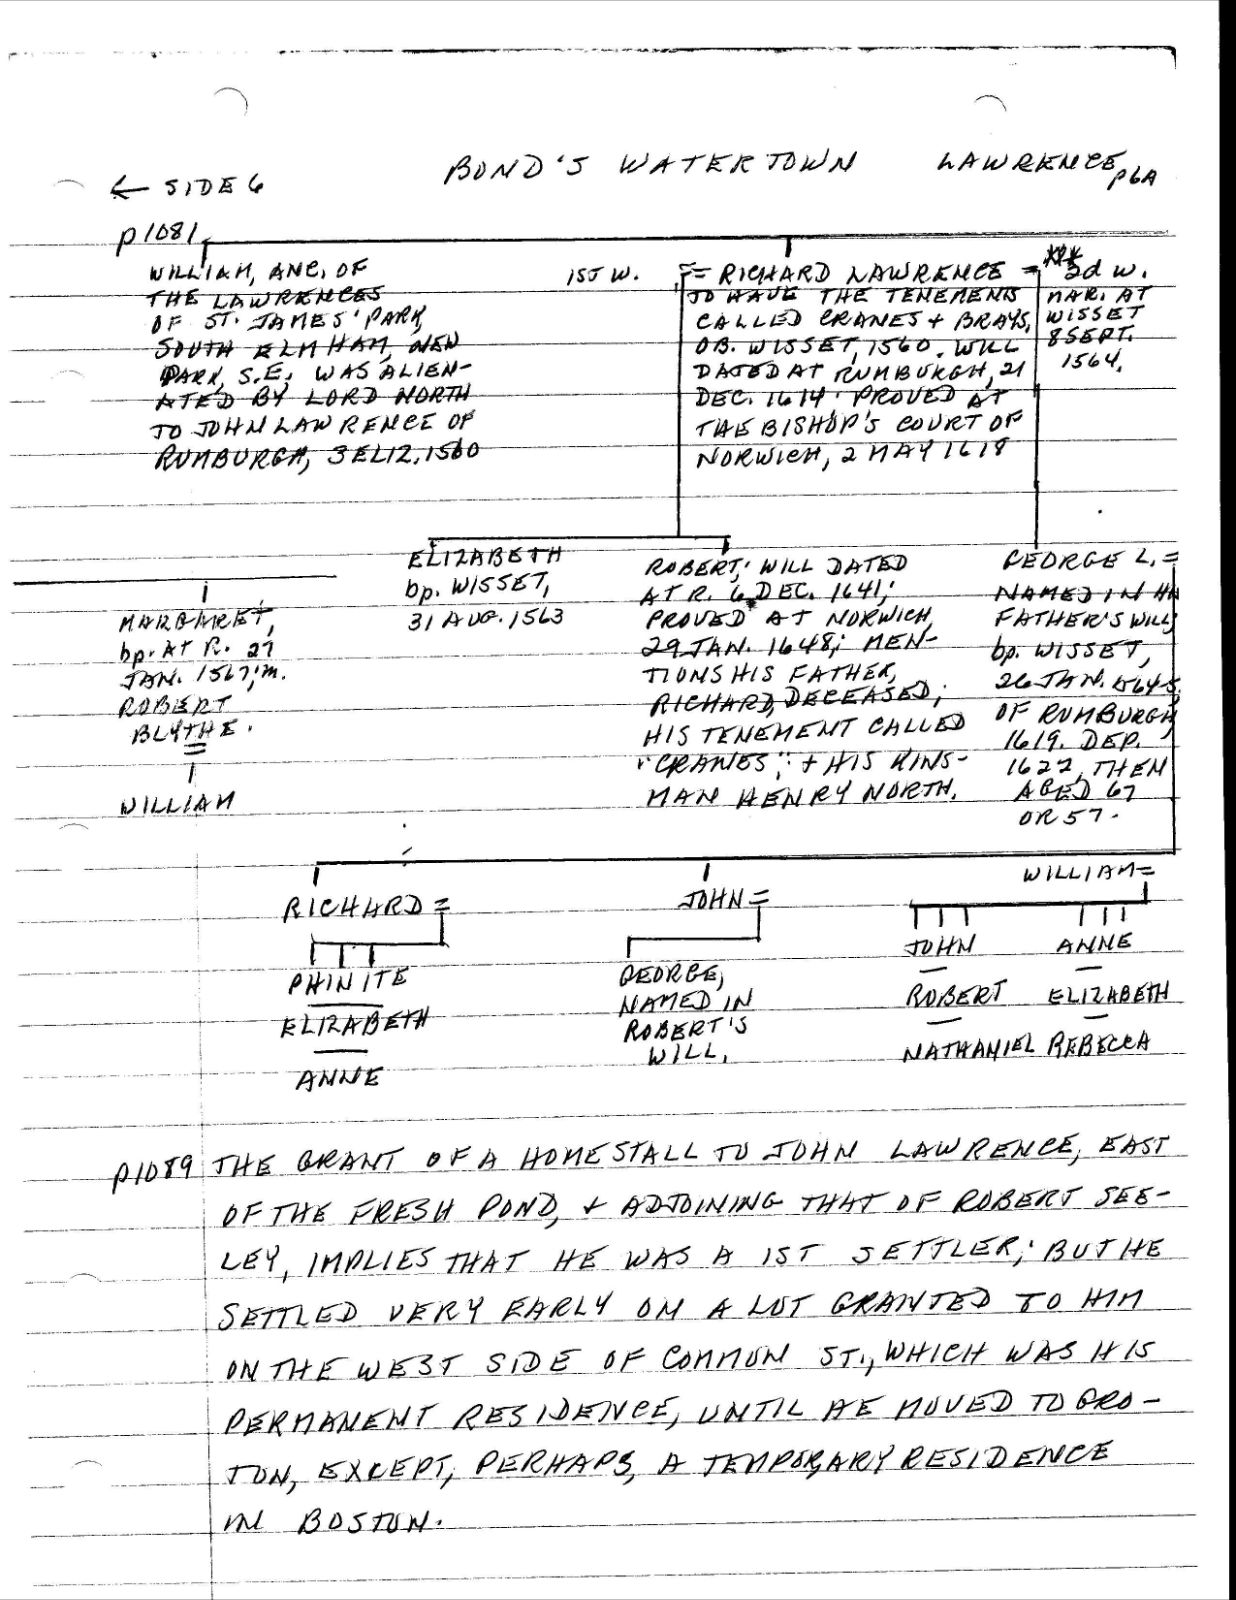 BOND'S WATERTOWN LAWRENCE p6A
← SIDE 6
p1081
WILLIAM, ANC. OF
THE LAWRENCES
OF ST. JAMES' PARK,
SOUTH ELMHAM, NEW
PARK, S.E. WAS ALIEN-
ATED BY LORD NORTH
TO JOHN LAWRENCE OF
RUMBURGH, 3 ELIZ. 1560
1ST W.
== RICHARD LAWRENCE =
TO HAVE THE TENEMENTS
CALLED CRANES + BRAYS,
OB. WISSET, 1560. WILL
DATED AT RUMBURGH, 21
DEC. 1614. PROVED AT
THE BISHOP'S COURT OF
NORWICH, 2 MAY 1618
***
2d W.
MAR. AT
WISSET
8 SEPT.
1564.
MARGARET,
bp. AT R. 27
JAN. 1567; m.
ROBERT
BLYTHE.
=
WILLIAM
ELIZABETH
bp. WISSET,
31 AUG. 1563
ROBERT; WILL DATED
AT R. 6 DEC. 1641;
PROVED AT NORWICH,
29 JAN. 1648; MEN-
TIONS HIS FATHER,
RICHARD, DECEASED;
HIS TENEMENT CALLED
"CRANES"; + HIS KINS-
MAN HENRY NORTH.
GEORGE L. =
NAMED IN
FATHER'S WILL;
bp. WISSET,
26 JAN.
OF RUMBURGH
1619. DEP.
1622, THEN
AGED 67
OR 57.
RICHARD =
PHINITE
ELIZABETH
ANNE
JOHN =
GEORGE,
NAMED IN
ROBERT'S
WILL.
WILLIAM =
JOHN ANNE
ROBERT ELIZABETH
NATHANIEL REBECCA
p1089 THE GRANT OF A HOMESTALL TO JOHN LAWRENCE, EAST
OF THE FRESH POND, + ADJOINING THAT OF ROBERT SEE-
LEY, IMPLIES THAT HE WAS A 1ST SETTLER; BUT HE
SETTLED VERY EARLY ON A LOT GRANTED TO HIM
ON THE WEST SIDE OF COMMON ST., WHICH WAS HIS
PERMANENT RESIDENCE, UNTIL HE MOVED TO GRO-
TON, EXCEPT, PERHAPS, A TEMPORARY RESIDENCE
IN BOSTON.